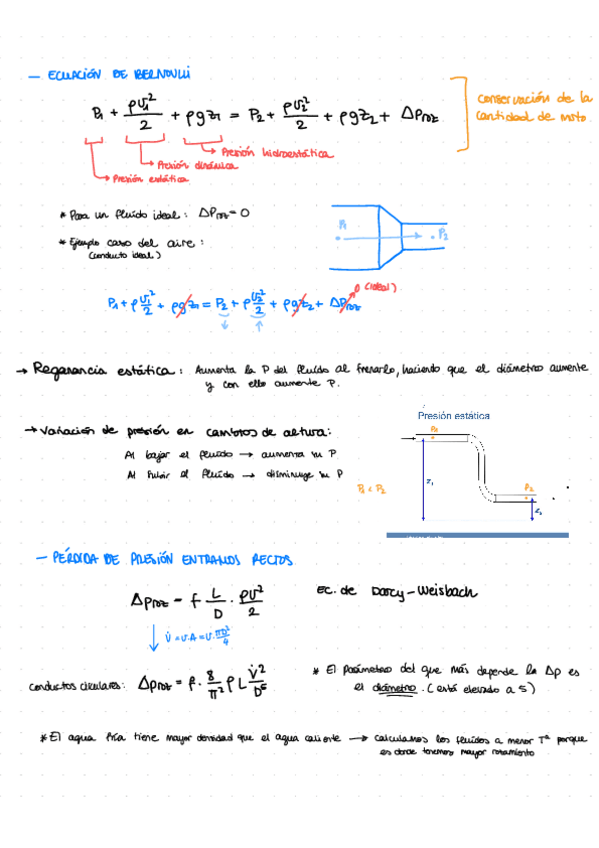 – ECUACIÓN DE BERNOULLI
P₁ + ρv₁²/2 + ρgz₁ = P₂ + ρv₂²/2 + ρgz₂ + ΔProz
conservación de la
cantidad de mvto.
Presión hidroestática
Presión dinámica
Presión estática
* Para un fluido ideal: ΔProz = 0
* Ejemplo caso del aire:
(conducto ideal)
P₁
P₂
0 (ideal)
P₁ + ρv₁²/2 + ρgz₁ = P₂ + ρv₂²/2 + ρgz₂ + ΔProz
→ Reganancia estática: Aumenta la P del fluido al frenarlo, haciendo que el diámetro aumente
y con ello aumente P.
→ Variación de presión en cambios de altura:
Al bajar el fluido → aumenta su P
Al subir el fluido → disminuye su P
Presión estática
P₁
P₁ < P₂
z₁
P₂
z₂
– PÉRDIDA DE PRESIÓN EN TRAMOS RECTOS
ΔProz = f L/D · ρv²/2
Ec. de Darcy-Weisbach
V̇ = v·A = v·πD²/4
conductos circulares: ΔProz = f · 8/π² ρ L V̇²/D⁵
* El parámetro del que más depende la Δp es
el diámetro. (está elevado a 5)
* El agua fría tiene mayor densidad que el agua caliente → calculamos los fluidos a menor Tª porque
es donde tenemos mayor rozamiento